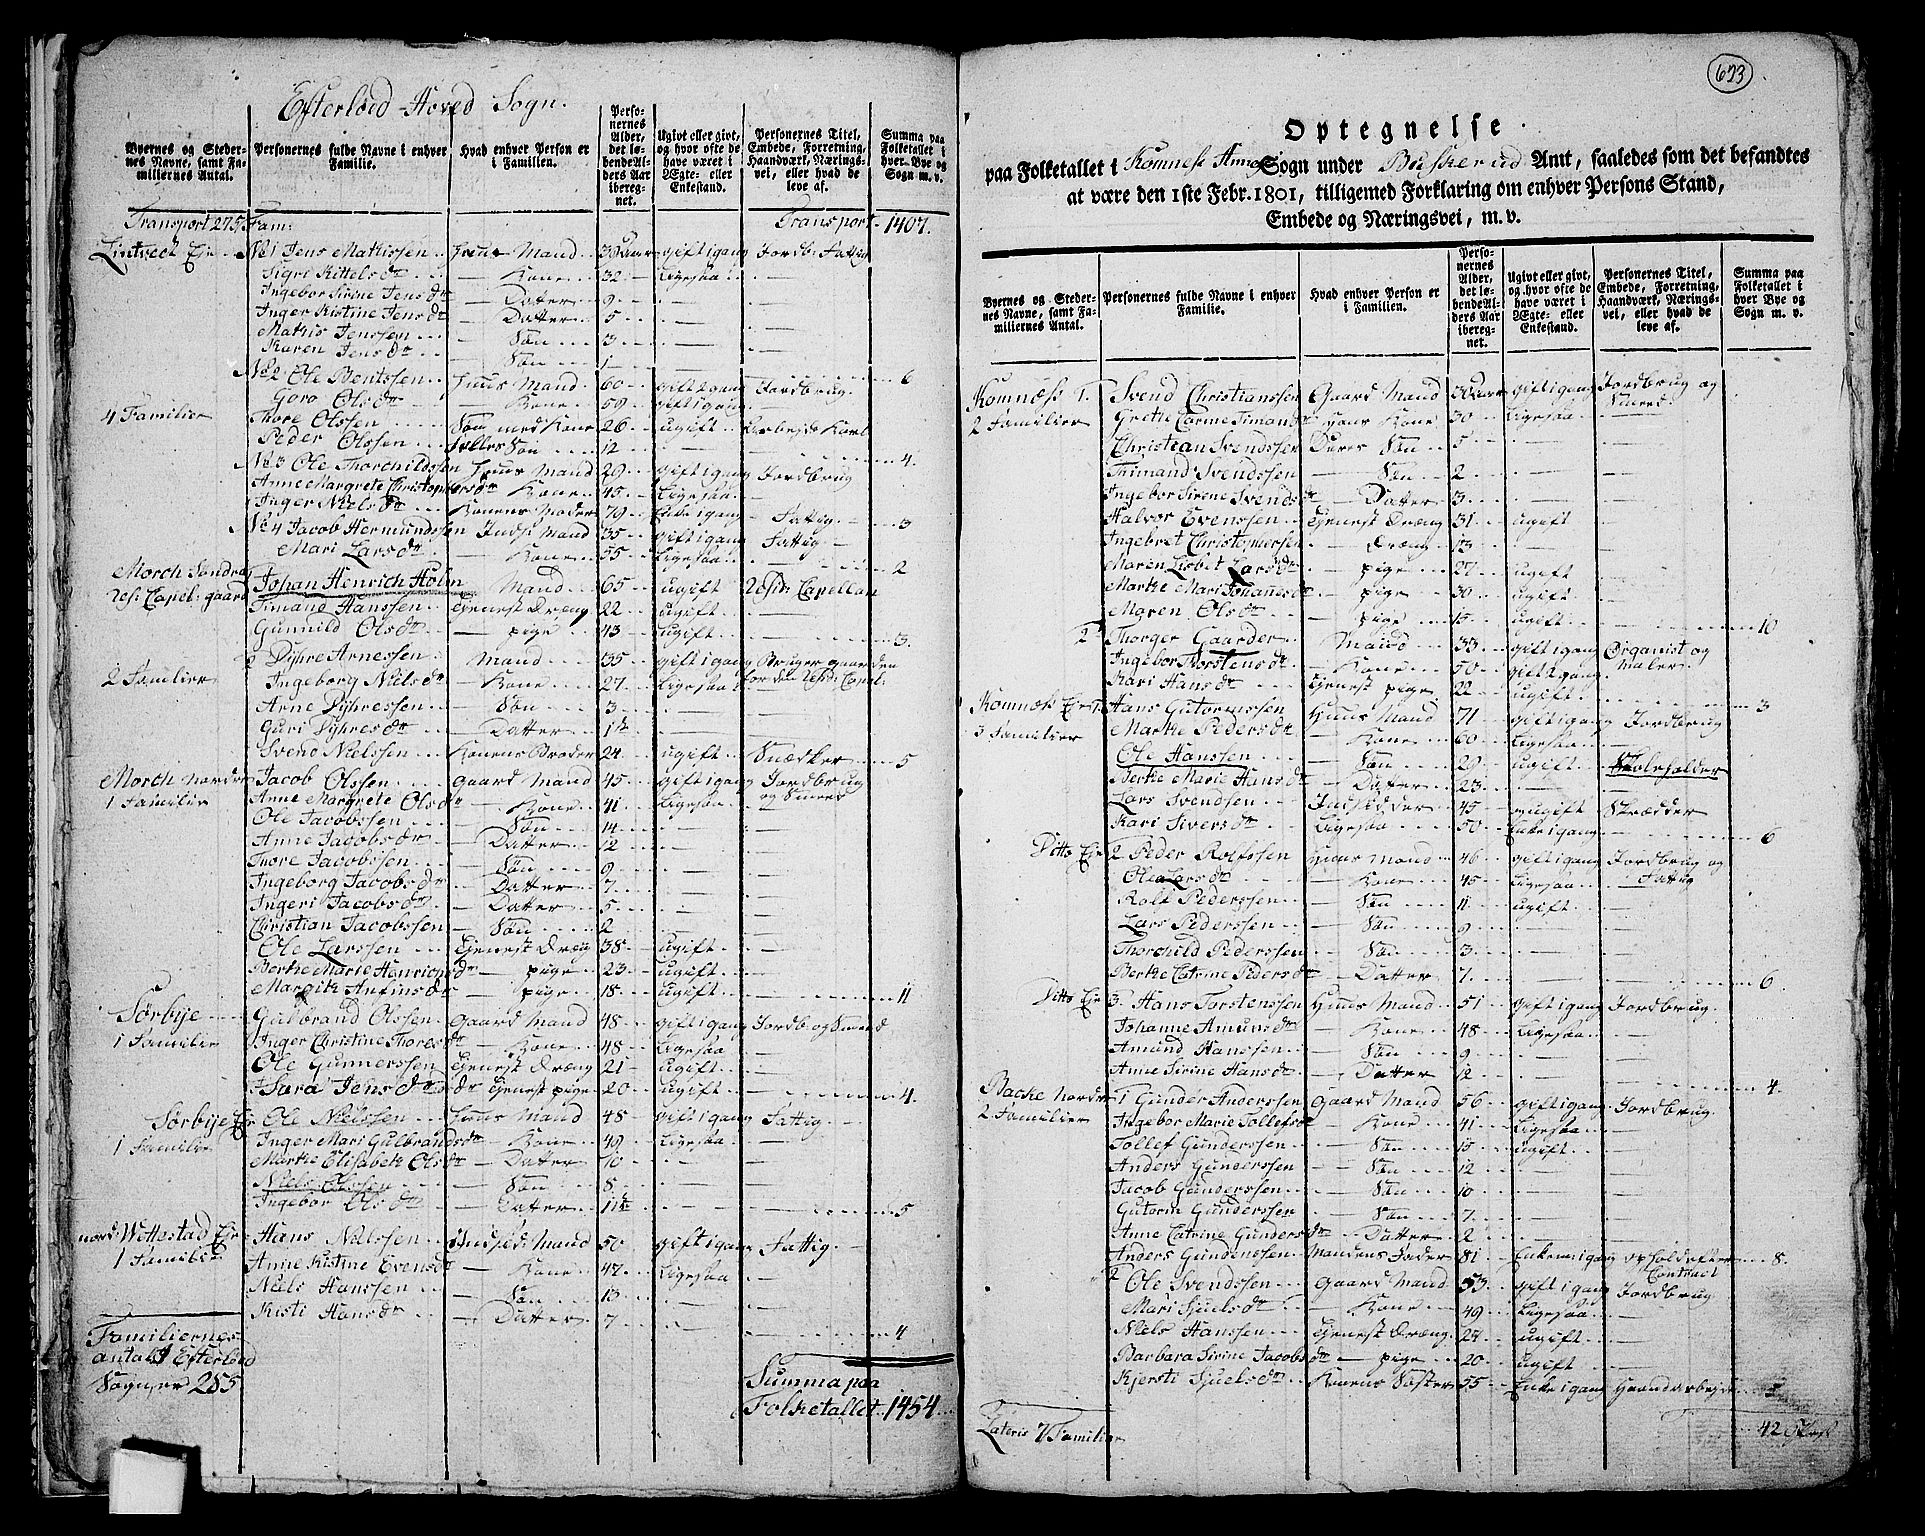 Efterløed-Hoved Sogn.
Byernes og Stedernes Navne, samt Familiernes Antal.
Personernes fulde Navne i enhver Familie.
Hvad enhver Person er i Familien.
Personernes Alder, det løbende Alders Aar iberegnet.
Ugivt eller givt, og hvor ofte de have været i Ægte- eller Enkestand.
Personernes Titel, Embede, Forretning, Haandværk, Næringsvei, eller hvad de leve af.
Summa paa Folketallet i hver Bye og Sogn m. v.
Transport 275, Fam: Transport. 1407.
No 1 Jens Mathissen Huus Mand 30 Aar gift 1 gang Jordb: Fattig
Sigri Kittelsdr — Kone 32 Ligesaa
Ingebor Sirine Jensdr — Datter 9 — —
Inger Kistine Jensdr — Datter 5 — —
Mathis Jenssen — Søn 3 — —
Karen Jensdr
— Søn 1 — — 6
No 2 Ole Bentssen Huus Mand 60 gift 2 gang Jordbrug
Goro Olsdr — Kone 59 gift 1 gang —
4 Familier Thore Olssen 26 ugift Arbejds Karl
Peder Olssen fælles Søn 12 — — 4.
No 3 Ole Thorchildssen Huus Mand 29 gift 1 gang Jordbrug
Anne Margrete Christophersdr Kone 45 Ligesaa —
Inger Nielsdr Konens Moder 79 Enke 1 gang Fattig 3
No 4 Jacob Hermundssen Indst Mand 35 gift 1 gang Fattig
Mari Larsdr — Kone 55 Ligesaa — 2
Morch Søndre Johan Henrich Holm Mand 65 ugift Resid: Capellan
Res: Capel: gaard Timand Hanssen Tjenest Dræng 22 ugift —
Gunnild Olsdr — pige 43 ugift — 3.
2 Dyhre Arnessen Mand 35 gift 1 gang Bruger gaarden
2 Familier Ingeborg Nielsdr — Kone 27 Ligesaa for den Resid: Capel:
Arne Dyhressen — Søn 3 — —
Guri Dyhresdr — Datter 1 — —
Svend Nielssen Konens Broder 24 ugift Snedker 5
Morch Nordre Jacob Olssen Gaard Mand 45 gift 1 gang Jordbrug
1 Familier Anne Margrete Olsdr — Kone 41 Ligesaa og Smed
Ole Jacobssen — Søn 14 — —
Anne Jacobsdr — Datter 12 — —
Thore Jacobssen — Søn 9 — —
Ingeborg Jacobsdr — Datter 7 — —
Ingeri Jacobsdr — Datter 5 — —
Christian Jacobssen — Søn 2 — —
Ole Larssen Tjenest Dræng 38 ugift —
Berthe Marie Henrichsdr — pige 23 ugift —
Margith Anfinsdr — pige 18 ugift — 11
Sørbye Gulbrand Olssen Gaard Mand 48 gift 1 gang Jordb og Smed
1 Familier Inger Christine Thoresdr — Kone 48 Ligesaa —
Ole Gunnerssen Tjenest Dræng 21 ugift —
Sara Jensdr Tjenest pige 20 ugift — 4.
Sørbye Eje Ole Nielssen Huus Mand 48 gift 1 gang Fattig
1 Familier Inger Mari Gulbrandsdr — Kone 49 Ligesaa —
Marthe Elisabeth Olsdr — Datter 10 — —
Niels Olssen — Søn 8 — —
Ingebor Olsdr — Datter 1 — — 5
nord: Wettestad Eje Hans Nielssen Indsid: Mand 50 gift 1 gang Fattig
1 Familie Anne Kistine Evensdr — Kone 47 Ligesaa —
Niels Hanssen — Søn 13 — —
Kisti Hansdr — Datter 7 — — 4
Familiernes
antal i Efterløed
Sogn er 285
Summa paa
Folketallet 1454
673
Optegnelse
paa Folketallet i Komnes Annex Sogn under Buskerud Amt, saaledes som det befandtes
at være den 1ste Febr. 1801, tilligemed Forklaring om enhver Persons Stand,
Embede og Næringsvei, m. v.
Byernes og Stedernes Navne, samt Familiernes Antal.
Personernes fulde Navne i enhver Familie.
Hvad enhver Person er i Familien.
Personernes Alder, det løbende Alders Aar iberegnet.
Ugivt eller givt, og hvor ofte de have været i Ægte- eller Enkestand.
Personernes Titel, Embede, Forretning, Haandværk, Næringsvei, eller hvad de leve af.
Summa paa Folketallet i hver Bye og Sogn m. v.
Komnæs 1. Svend Christianssen Gaard Mand 30 Aar gift 1 gang Jordbrug og
2 Familier Grethe Carine Simandr hans Kone 30 Ligesaa Smed
Christian Svendssen Deres Søn 5 — —
Simand Svendssen — Søn 2 — —
Ingebor Sirene Svendsdr — Datter 3 — —
Halvor Evenssen Tjenest Dræng 31 ugift —
Ingebret Christophersen — Dræng 13 — —
Maren Lisbet Larsdr — pige 27 ugift —
Marthe Mari Johannesdr — pige 30 ugift —
Maren Olsdr — pige 15 ugift — 10
2 Thorger Gaarder Mand 33 gift 1 gang Organist og
Ingebor Torstensdr — Kone 50 gift 2 gang Maler
Kari Hansdr Tjenest pige 22 ugift 3
Komnæs Eje 1. Hans Gutormssen Huus Mand 71 gift 1 gang Jordbrug
3 Familier Marthe Pedersdr — Kone 60 Ligesaa —
Ole Hanssen — Søn 29 ugift Skoleholder
Berthe Marie Hansdr — Datter 23 — —
Lars Svendsen Indsidder 45 ugift Skrædder
Kari Siversdr Ligesaa 50 Enke 1 gang — 6
Ditto Eje 2 Peder Rolfssen Huus Mand 46 gift 1 gang Jordbrug og
Ole Larsdr — Kone 45 Ligesaa Fattig
Rolf Pederssen — Søn 11 ugift —
Lars Pederssen — Søn 9 — —
Thorchild Pederssen — Søn 3 — —
Berthe Catrine Pedersdr — Datter 7 — — 6
Ditto Eje 3. Hans Torstenssen Huus Mand 51 gift 1 gang Jordbrug
Johanne Amunsdr — Kone 48 Ligesaa —
Amund Hanssen — Søn 9 — —
Anne Sirine Hansdr — Datter 12 — — 4.
Backe Nordre 1 Gunder Anderssen Gaard Mand 56 gift 1 gang Jordbrug
2 Familier Ingebor Marie Tollefsdr — Kone 41 Ligesaa —
Tollef Gunderssen — Søn 15 ugift —
Anders Gunderssen — Søn 12 — —
Jacob Gunderssen — Søn 10 — —
Gutorm Gunderssen — Søn 7 — —
Anne Catrine Gundersdr — Datter 2 — —
Anders Gundenssen Mandens Fader 81 Enkem 1 gang ophold efter 8.
Contract
2 Ole Svendssen Gaard Mand 53 gift 1 gang Jordbrug
Mari Sjuelsdr — Kone 49 Ligesaa —
Niels Hanssen Tjenest Dræng 27 ugift —
Barbara Sirine Jacobsdr — pige 20 ugift —
Kjersti Sjuelsdr Konens Søster 55 Enke 1 gang Haandarbejde
Lateris 7 Familier 42